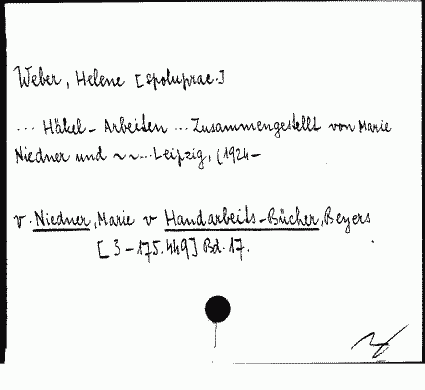 Weber, Helene [spoluprac.]
... Häkel-Arbeiten ... Zusammengestellt von Marie
Niedner und ~~... Leipzig, (1924-
v. Niedner, Marie v Handarbeits-Bücher, Beyers
[3-175.449] Bd. 17.